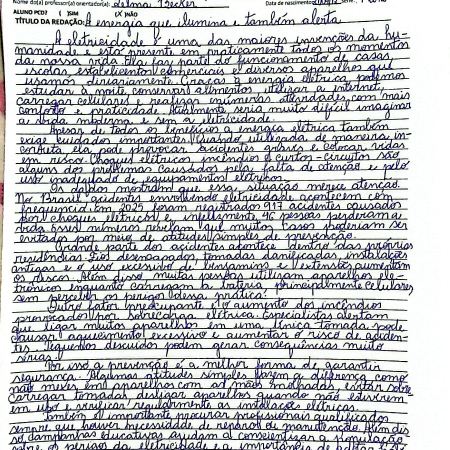 Nome do(a) professor(a) orientador(a): Delma Becker
Data de nascimento
ALUNO PCD? ( )SIM (X)NÃO
TÍTULO DA REDAÇÃO: A energia que ilumina e também alerta
A eletricidade é uma das maiores invenções da hu-
manidade e está presente em praticamente todos os momentos
da nossa vida. Ela faz parte do funcionamento de casas,
escolas, estabelecimentos comerciais e diversos aparelhos que
usamos diariamente. Graças à energia elétrica podemos
estudar à noite, conservar alimentos, utilizar a internet,
carregar celulares e realizar inúmeras atividades com mais
conforto e praticidade. Atualmente, seria muito difícil imaginar
a vida moderna e sem a eletricidade.
Apesar de todos os benefícios, a energia elétrica também
exige cuidados importantes. Quando utilizada de maneira in-
correta ela pode provocar acidentes graves e colocar vidas
em risco. Choques elétricos, incêndios e curtos-circuitos são
alguns dos problemas causados pela falta de atenção e pelo
uso inadequado de equipamentos elétricos.
Os dados mostram que essa situação merece atenção.
No Brasil acidentes envolvendo eletricidade acontecem com
frequência. Em 2025, foram registrados 917 acidentes causados
por choques elétricos e infelizmente, 46 pessoas perderam a
vida. Esses números revelam que muitos casos poderiam ser
evitados por meio de atitudes simples de prevenção.
Grande parte dos acidentes acontece dentro das próprias
residências. Fios desencapados, tomadas danificadas, instalações
antigas e o uso excessivo de benjamins e extensões aumentam
os riscos. Além disso muitas pessoas utilizam aparelhos ele-
trônicos enquanto carregam a bateria, principalmente celulares
sem perceber os perigos dessa prática.
Outro fator preocupante é o aumento dos incêndios
provocados por sobrecarga elétrica. Especialistas alertam
que ligar muitos aparelhos em uma única tomada pode
causar aquecimento excessivo e aumentar o risco de aciden-
tes. Pequenos descuidos podem gerar consequências muito
sérias.
Por isso a prevenção é a melhor forma de garantir
segurança. Algumas atitudes simples fazem a diferença como
não mexer em aparelhos com as mãos molhadas, evitar sobre
carregar tomadas, desligar aparelhos quando não estiverem
em uso e verificar regularmente as instalações elétricas.
Também é importante procurar profissionais qualificados
sempre que houver necessidade de reparos ou manutenção. Além dis
so, campanhas educativas ajudam a conscientizar a população
sobre os perigos da eletricidade e a importância de